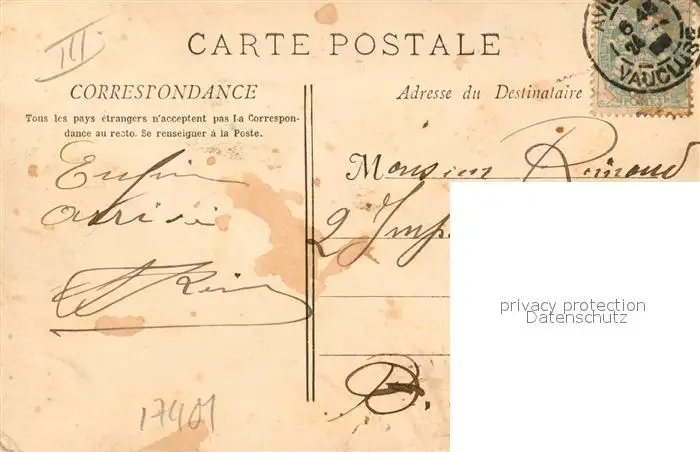 III
CARTE POSTALE
AVI
VAUCLUSE
POSTES
CORRESPONDANCE
Tous les pays étrangers n'acceptent pas la Correspon-
dance au recto. Se renseigner à la Poste.
Adresse du Destinataire
Enfin
arrivé
Monsieur
2 Imp
B.
privacy protection
Datenschutz
17401